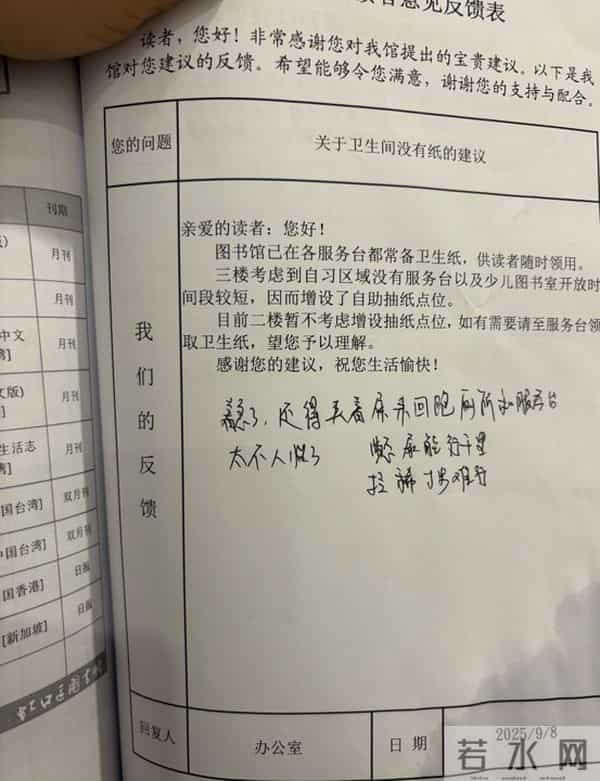 意见反馈表
读者，您好！非常感谢您对我馆提出的宝贵建议。以下是我
馆对您建议的反馈。希望能够令您满意，谢谢您的支持与配合。
您的问题
关于卫生间没有纸的建议
我们的反馈
亲爱的读者：您好！
图书馆已在各服务台都常备卫生纸，供读者随时领用。
三楼考虑到自习区域没有服务台以及少儿图书室开放时
间段较短，因而增设了自助抽纸点位。
目前二楼暂不考虑增设抽纸点位，如有需要请至服务台领
取卫生纸，望您予以理解。
感谢您的建议，祝您生活愉快！
着急了，还得夹着尿来回跑厕所和服务台
太不人性了
憋尿能行千里
拉稀寸步难行
回复人
办公室
日 期
2025/9/8
若水网
刊期
月刊
月刊
中文
月刊
文版)
月刊
生活志
月刊
国台湾]
双月刊
中国台湾]
双月刊
国香港]
日报
[新加坡]
日报